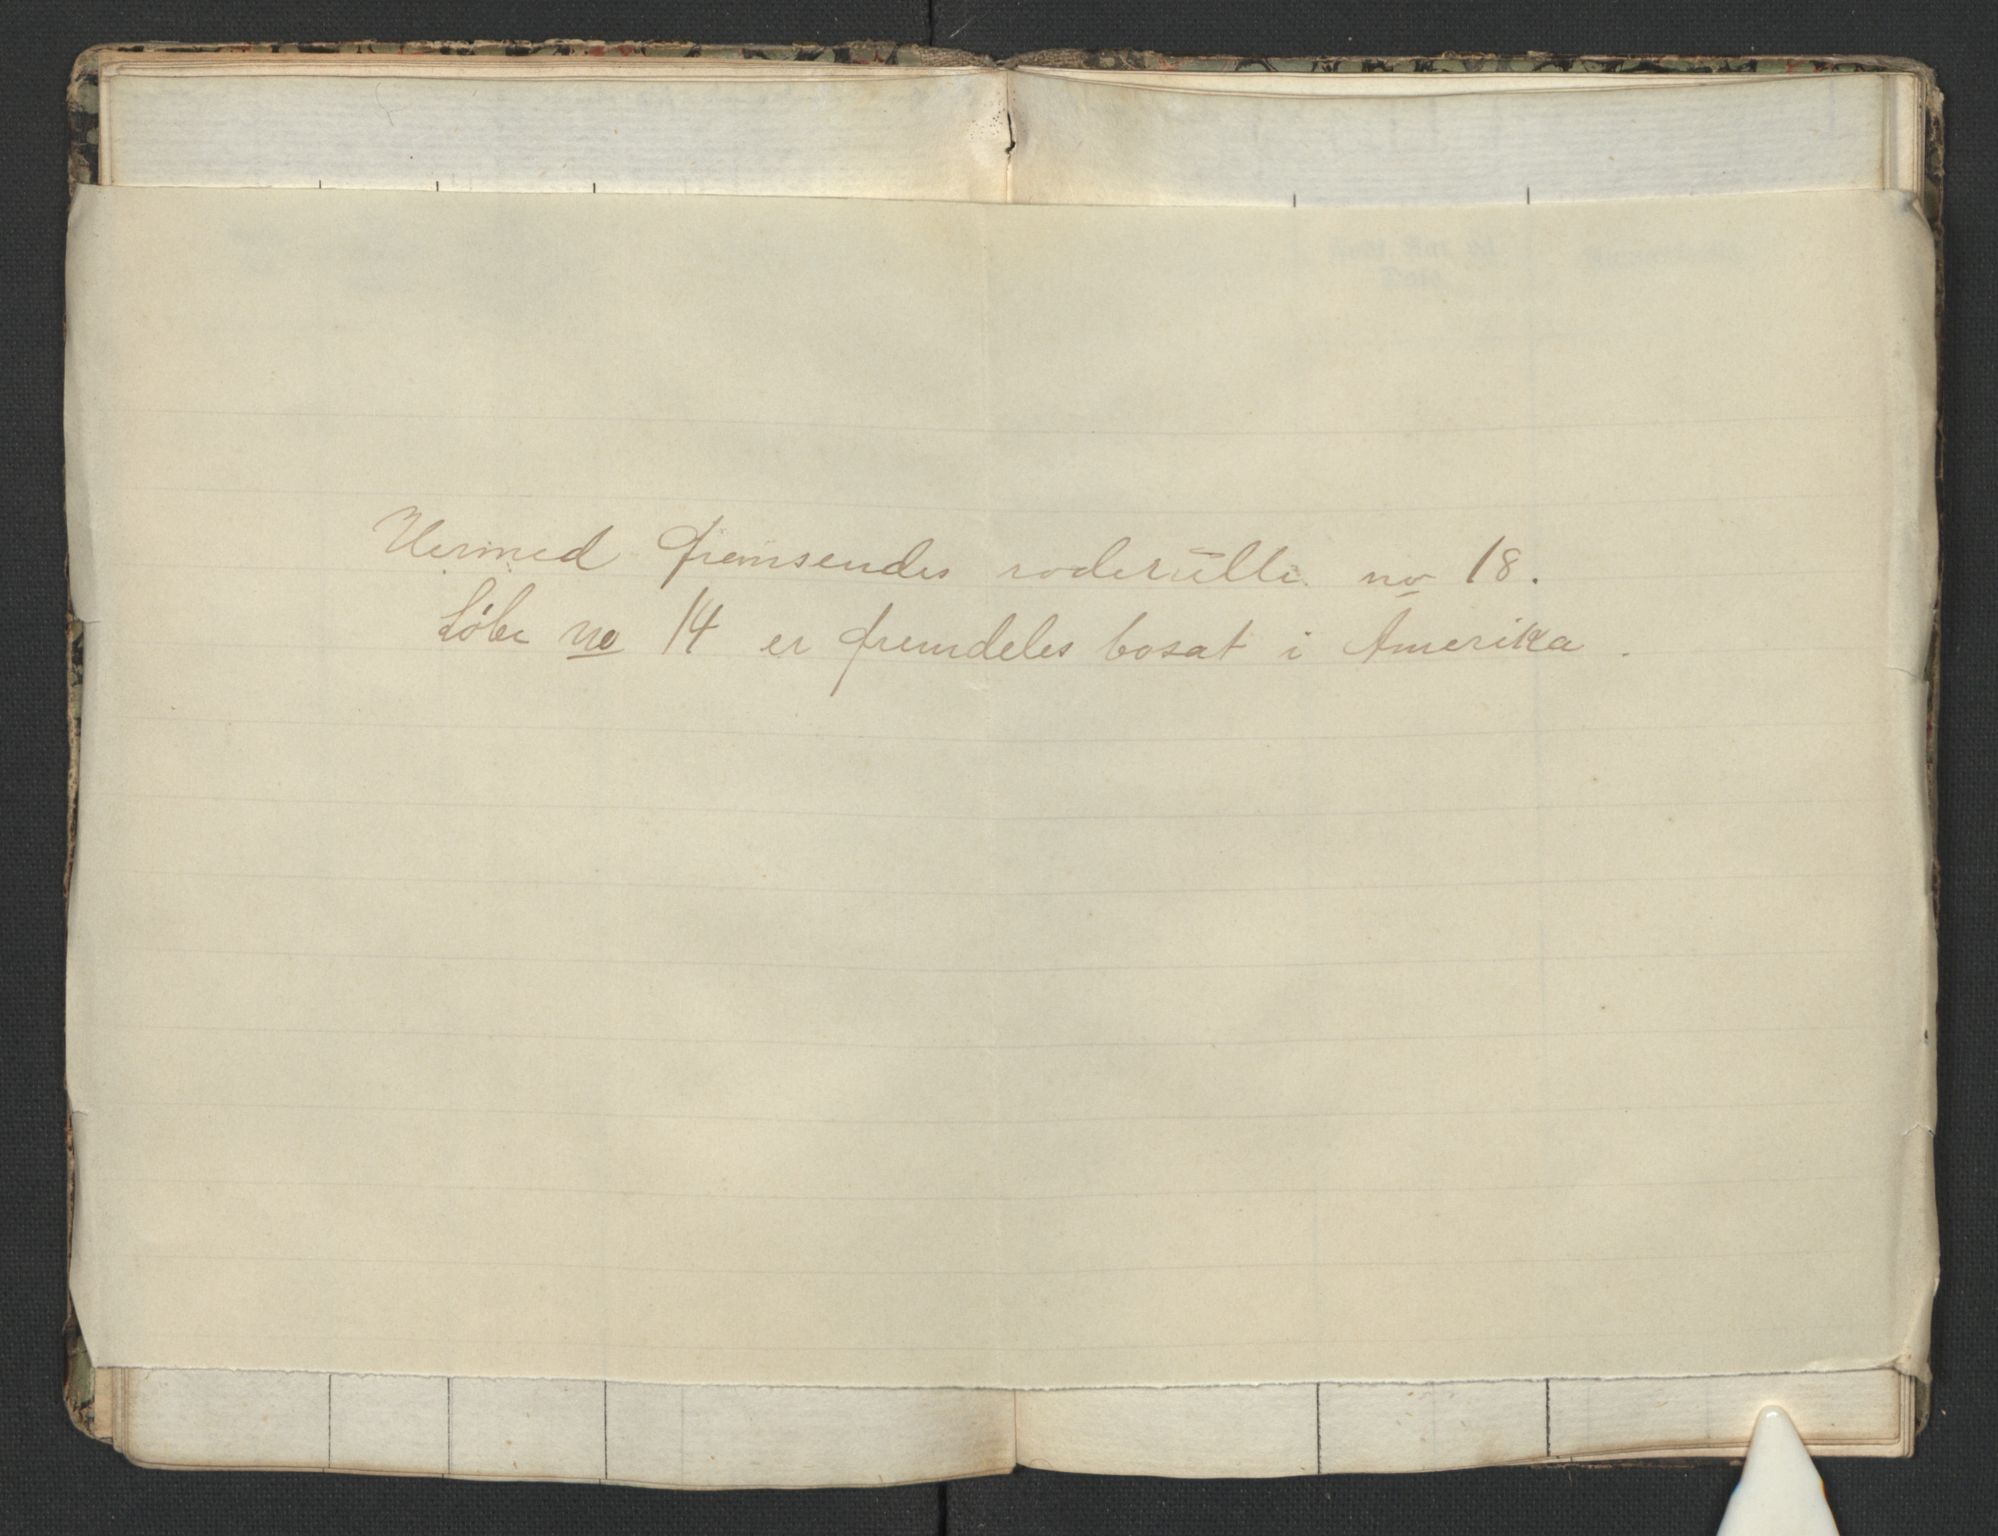 Hermed fremsendes roderulle no 18.
Løbe no 14 er fremdeles bosat i Amerika.